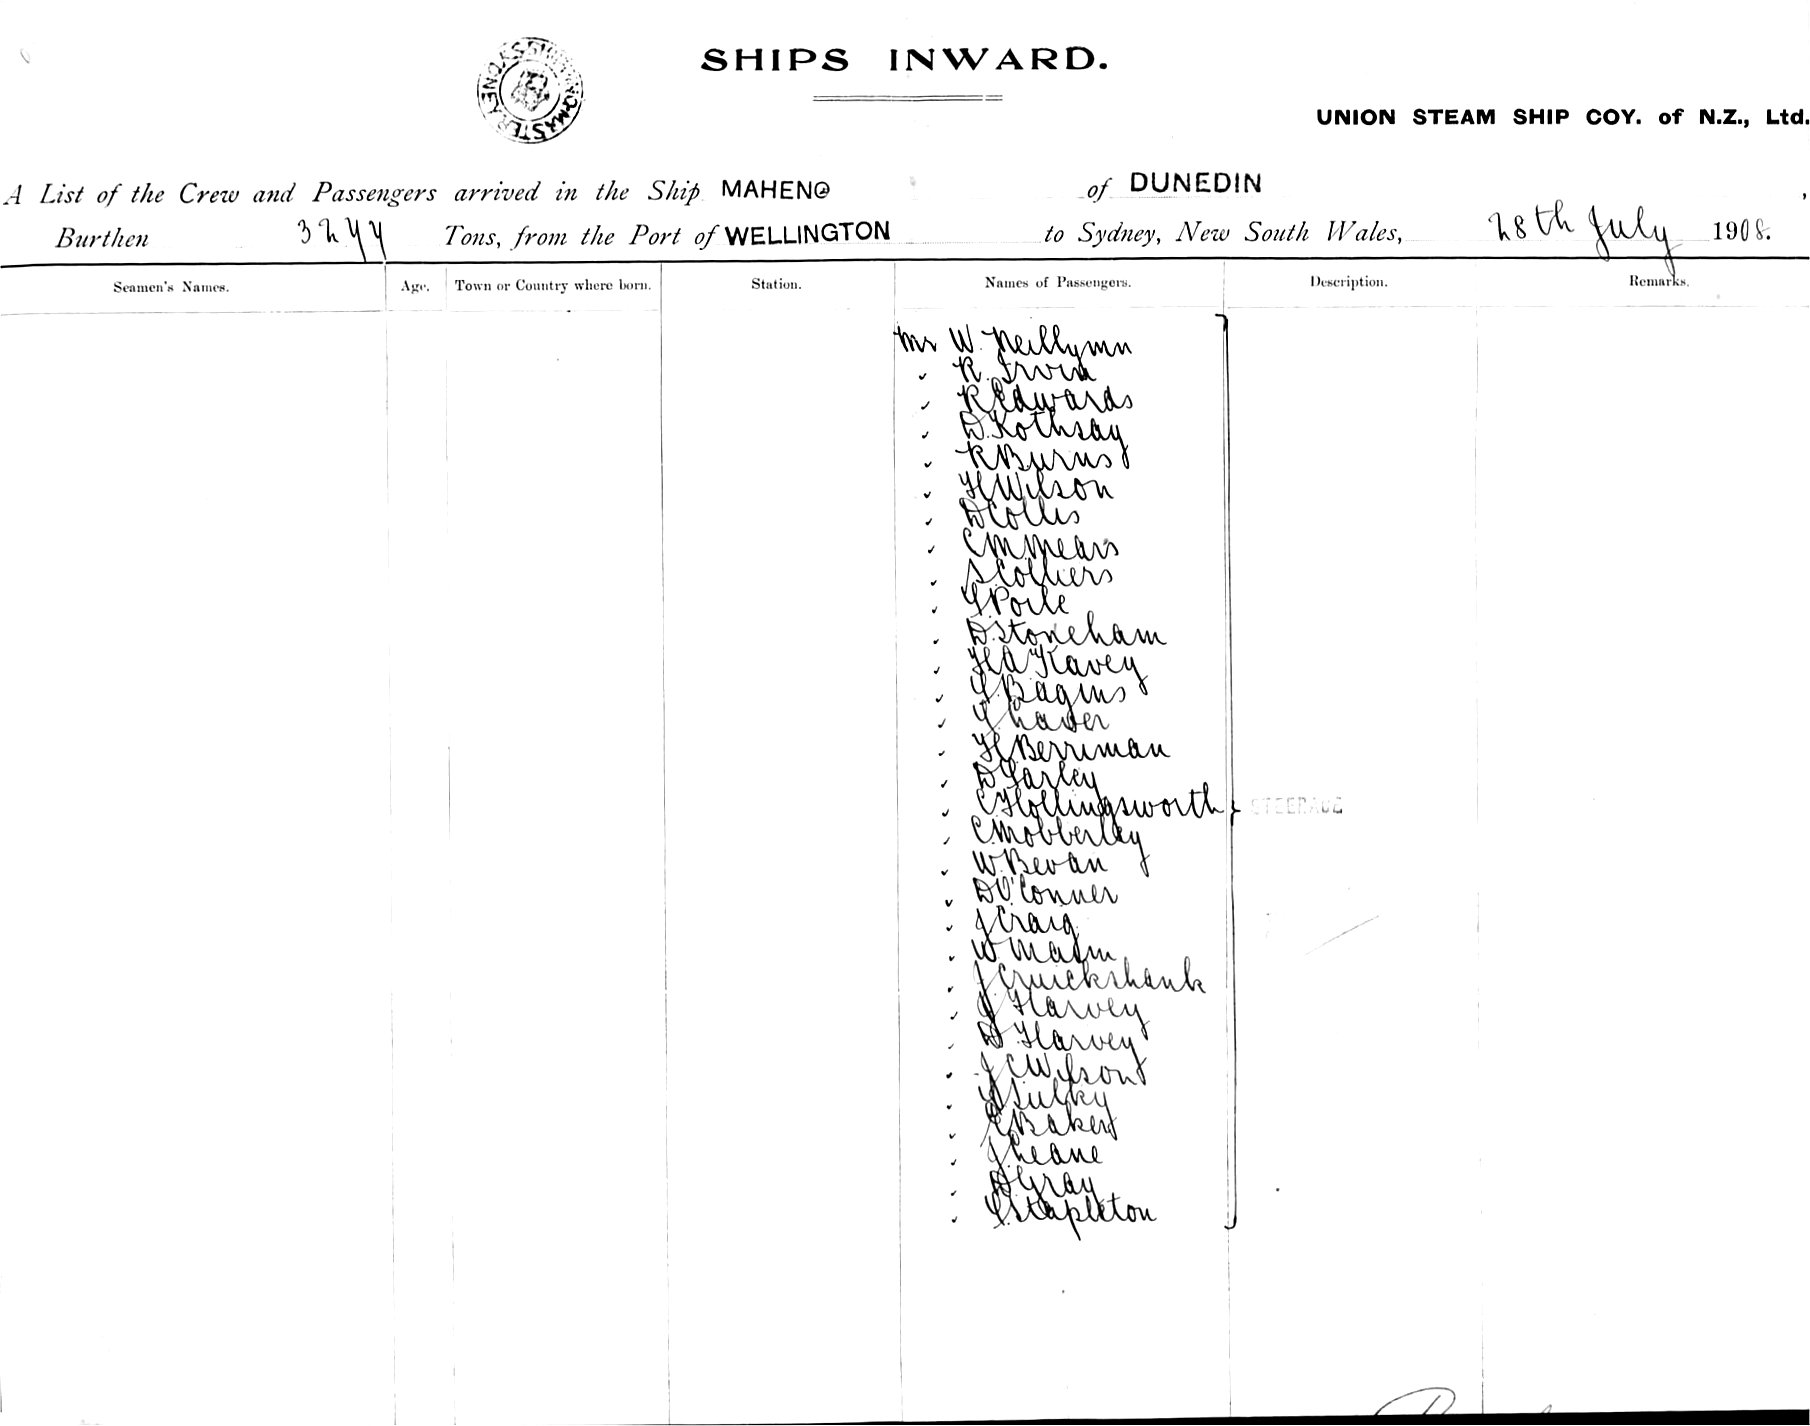 SHIPS INWARD.
SHIPPING MASTER SYDNEY
UNION STEAM SHIP COY. of N.Z., Ltd.
A List of the Crew and Passengers arrived in the Ship MAHENO of DUNEDIN,
Burthen 3244 Tons, from the Port of WELLINGTON to Sydney, New South Wales, 28th July 1908.
Seamen's Names. Age. Town or Country where born. Station. Names of Passengers. Description. Remarks.
Mr W.
" R. Irvin
" R Edwards
" D. Rothsay
" R Burns
" H Wilson
" D Collis
" C M Mears
" S Colliers
" G Poile
" D Stoneham
" H A Kavey
" G Bagins
"
" H Berriman
" D Farley
" C Hollingsworth } STEERAGE
" C Mobberley
" W Bevan
" D O'Conner
" J Craig
" W
" J Cruickshank
" J Harvey
" D Harvey
" J C Wilson
" Sulky
" Baker
" J Keane
" D Gray
" G Stapleton